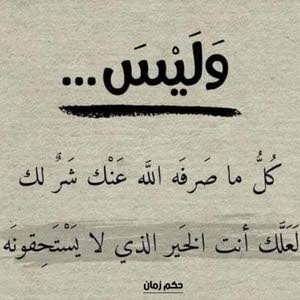 وَلَيْسَ...
كُلُّ ما صَرفَه اللَّه عَنْك شَرٌ لك
لَعَلَّك أنت الخَير الذي لا يَسْتَحِقونَه
حكم زمان